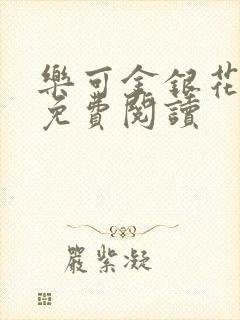 樂可金銀花
免費閱讀
嚴紫凝